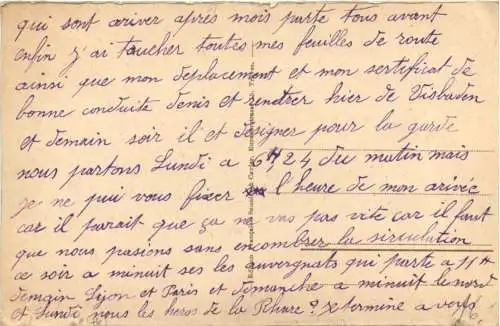 qui sont ariver après mois parte tous avant
enfin j'ai toucher toutes mes feuilles de route
ainsi que mon deplacement et mon sertificat de
bonne conduite denis et rentrer hier de Visbaden
et demain soir il et désigner pour la garde
nous partons Lundi a 6H,24 du matin mais
je ne pui vous fixer l'heure de mon arivée
car il parait que ça ne vas pas vite car il faut
que nous pasions sans encombrer la sirculation
ce soir a minuit ses les auvergnats qui parte a 11H
demain Dijon et Paris et dimanche a minuit le nord
et Lundi nous les heros de la Rhure? je termine a vous